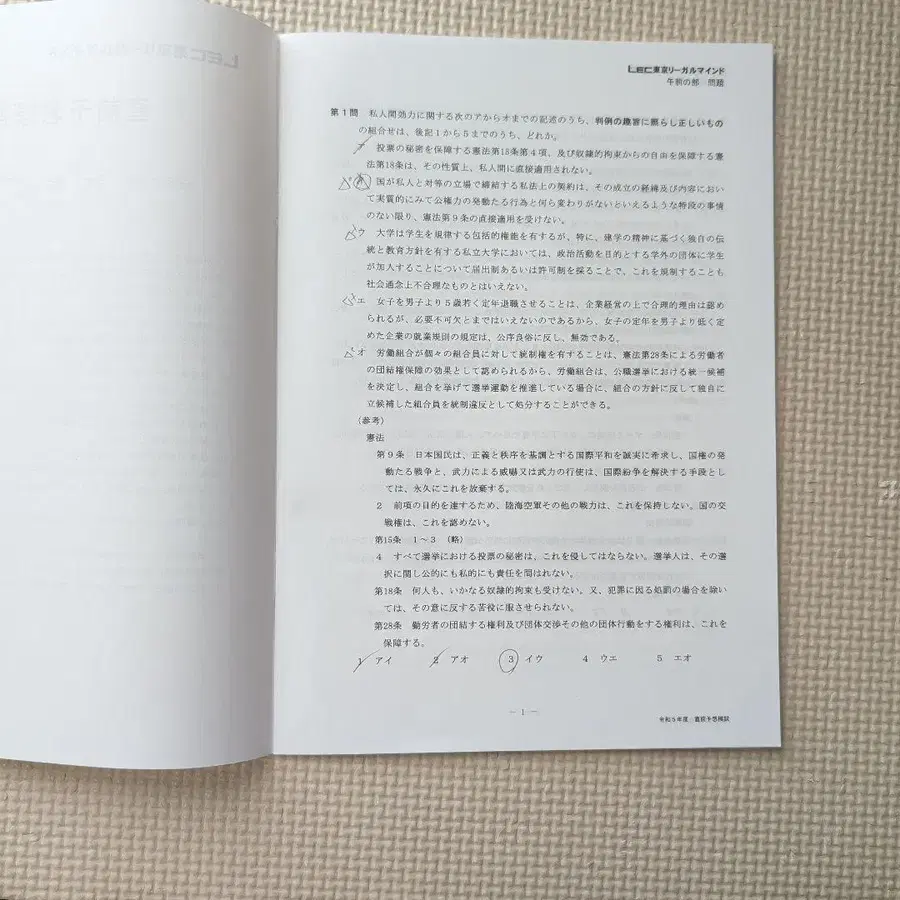 LEC東京リーガルマインド
午前の部 問題
第1問 私人間効力に関する次のアからオまでの記述のうち、判例の趣旨に照らし正しいもの
の組合せは、後記1から5までのうち、どれか。
ア 投票の秘密を保障する憲法第15条第4項、及び奴隷的拘束からの自由を保障する憲
法第18条は、その性質上、私人間に直接適用されない。
イ 国が私人と対等の立場で締結する私法上の契約は、その成立の経緯及び内容におい
て実質的にみて公権力の発動たる行為と何ら変わりがないといえるような特段の事情
のない限り、憲法第9条の直接適用を受けない。
ウ 大学は学生を規律する包括的権能を有するが、特に、建学の精神に基づく独自の伝
統と教育方針を有する私立大学においては、政治活動を目的とする学外の団体に学生
が加入することについて届出制あるいは許可制を採ることで、これを規制することも
社会通念上不合理なものとはいえない。
エ 女子を男子より5歳若く定年退職させることは、企業経営の上で合理的理由は認め
られるが、必要不可欠とまではいえないのであるから、女子の定年を男子より低く定
めた企業の就業規則の規定は、公序良俗に反し、無効である。
オ 労働組合が個々の組合員に対して統制権を有することは、憲法第28条による労働者
の団結権保障の効果として認められるから、労働組合は、公職選挙における統一候補
を決定し、組合を挙げて選挙運動を推進している場合に、組合の方針に反して独自に
立候補した組合員を統制違反として処分することができる。
(参考)
憲法
第9条 日本国民は、正義と秩序を基調とする国際平和を誠実に希求し、国権の発
動たる戦争と、武力による威嚇又は武力の行使は、国際紛争を解決する手段とし
ては、永久にこれを放棄する。
2 前項の目的を達するため、陸海空軍その他の戦力は、これを保持しない。国の交
戦権は、これを認めない。
第15条 1〜3 (略)
4 すべて選挙における投票の秘密は、これを侵してはならない。選挙人は、その選
択に関し公的にも私的にも責任を問はれない。
第18条 何人も、いかなる奴隷的拘束も受けない。又、犯罪に因る処罰の場合を除い
ては、その意に反する苦役に服させられない。
第28条 勤労者の団結する権利及び団体交渉その他の団体行動をする権利は、これを
保障する。
1 アイ 2 アオ 3 イウ 4 ウエ 5 エオ
— 1 —
令和5年度 直前予想模試